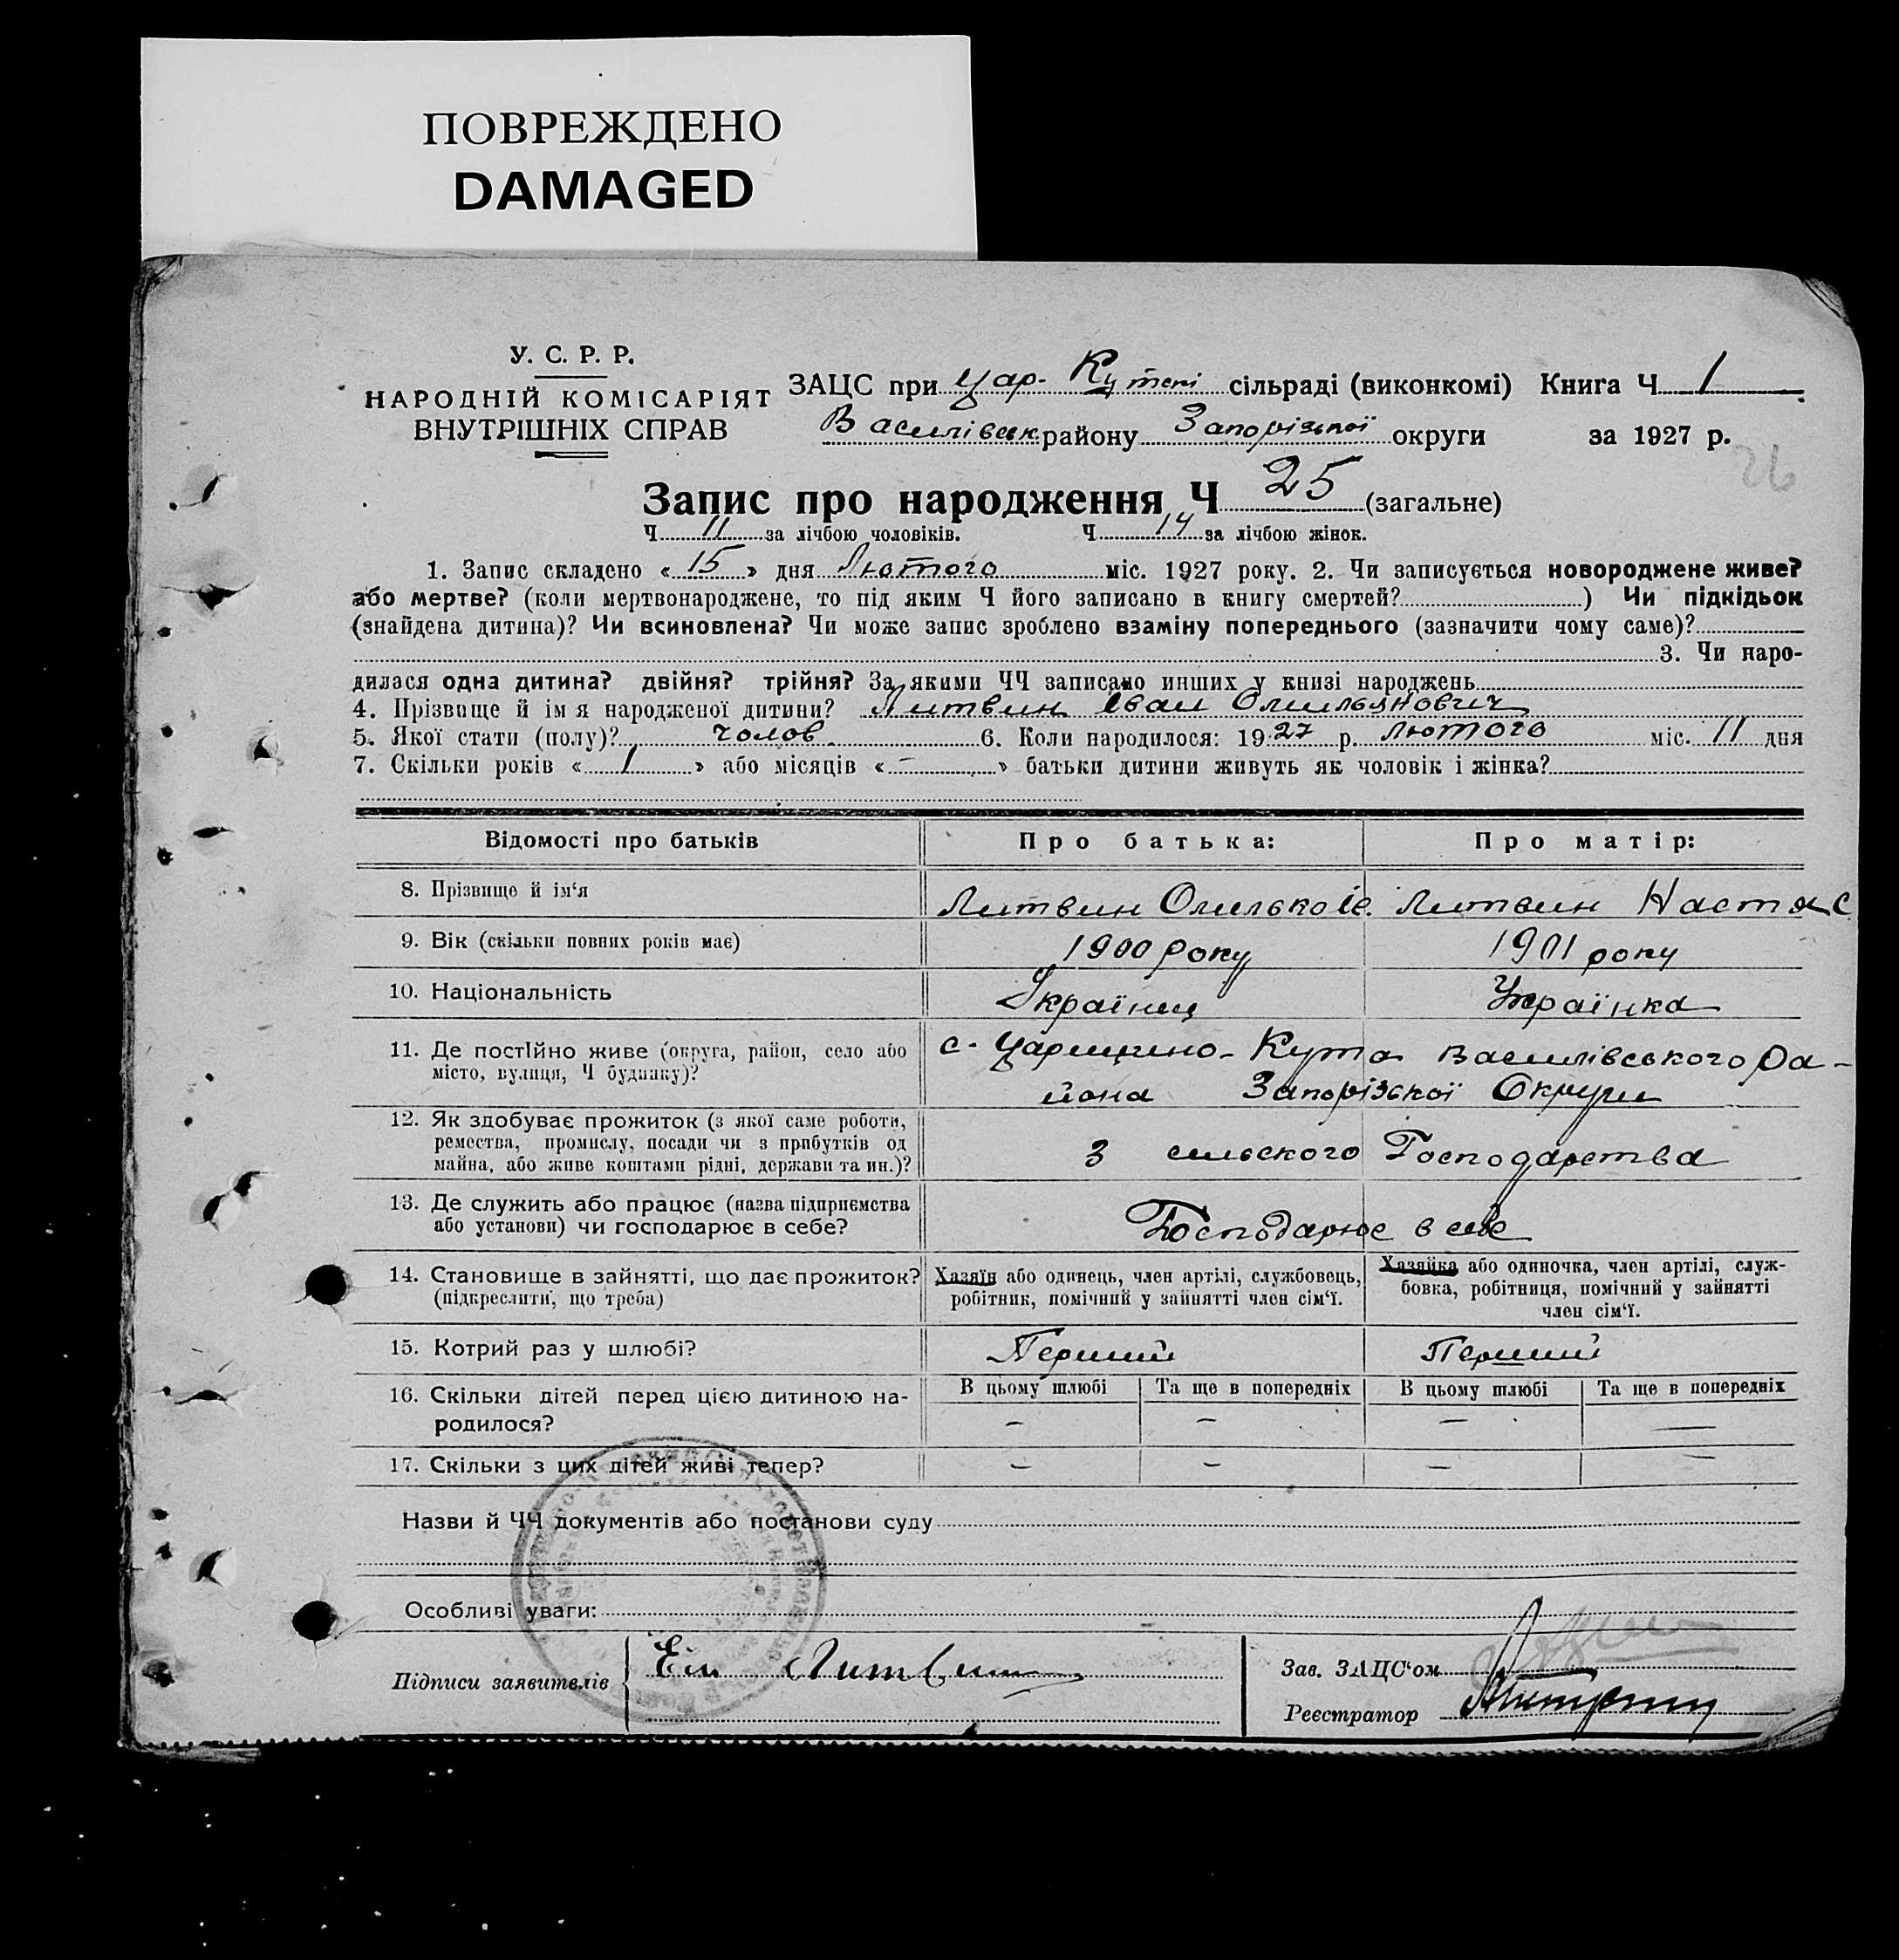 ПОВРЕЖДЕНО
DAMAGED
У. С. Р. Р.
НАРОДНІЙ КОМІСАРІЯТ
ВНУТРІШНІХ СПРАВ
ЗАЦС при Цар- Кутскі сільраді (виконкомі) Книга Ч 1
Василівськ. району Запорізької округи за 1927 р.
26
Запис про народження Ч 25 (загальне)
Ч 11 за лічбою чоловіків. Ч 14 за лічбою жінок.
1. Запис складено « 15 » дня Лютого міс. 1927 року. 2. Чи записується новороджене живе?
або мертве? (коли мертвонароджене, то під яким Ч його записано в книгу смертей? ) Чи підкідьок
(знайдена дитина)? Чи всиновлена? Чи може запис зроблено взаміну попереднього (зазначити чому саме)?
3. Чи наро-
дилася одна дитина? двійня? трійня? За якими ЧЧ записано инших у книзі народжень
4. Прізвище й ім я народженої дитини? Литвин Іван Омильянович
5. Якої стати (полу)? чолов. 6. Коли народилося: 19 27 р. Лютого міс. 11 дня
7. Скільки років « 1 » або місяців « – » батьки дитини живуть як чоловік і жінка?
Відомості про батьків Про батька: Про матір:
8. Прізвище й ім‘я Литвин Омилько Ів. Литвин Настя С
9. Вік (скільки повних років має) 1900 року 1901 року
10. Національність Українец Українка
11. Де постійно живе (округа, район, село або
місто, вулиця, Ч будинку)?
с. Царицино-Кута Василівського Ра-
йона Запорізької Округи
12. Як здобуває прожиток (з якої саме роботи,
ремества, промислу, посади чи з прибутків од
майна, або живе коштами рідні, держави та ин.)?
З сильского Господарства
13. Де служить або працює (назва підприємства
або установи) чи господарює в себе?
Господарює в себе
14. Становище в зайнятті, що дає прожиток?
(підкреслити, що треба)
Хазяїн або одинець, член артілі, службовець,
робітник, помічний у зайнятті член сім‘ї.
Хазяйка або одиночка, член артілі, служ-
бовка, робітниця, помічний у зайнятті
член сім‘ї.
15. Котрий раз у шлюбі? Перший Перший
16. Скільки дітей перед цією дитиною на-
родилося?
В цьому шлюбі Та ще в попередніх В цьому шлюбі Та ще в попередніх
– – – –
17. Скільки з цих дітей живі тепер? – – – –
Назви й ЧЧ документів або постанови суду
Особливі уваги:
Підписи заявителів Ем Литвин
Зав. ЗАЦС‘ом
Реєстратор